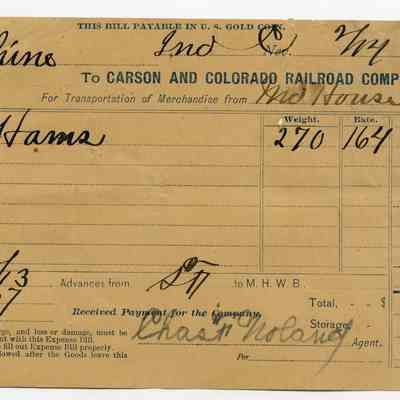 THIS BILL PAYABLE IN U. S. GOLD COIN.
Ind Co Nov. 2/04
To CARSON AND COLORADO RAILROAD COMP
For Transportation of Merchandise from Md House
Weight. Rate.
Hams 270 164
13
7 Advances from to M. H. W. B.
Total, - $
Received Payment for the Company,
Storage, $
Chas H Noland Agent.
rge, and loss or damage, must be
nt with this Expense Bill.
fill out Expense Bill properly.
lowed after the Goods leave this
Per